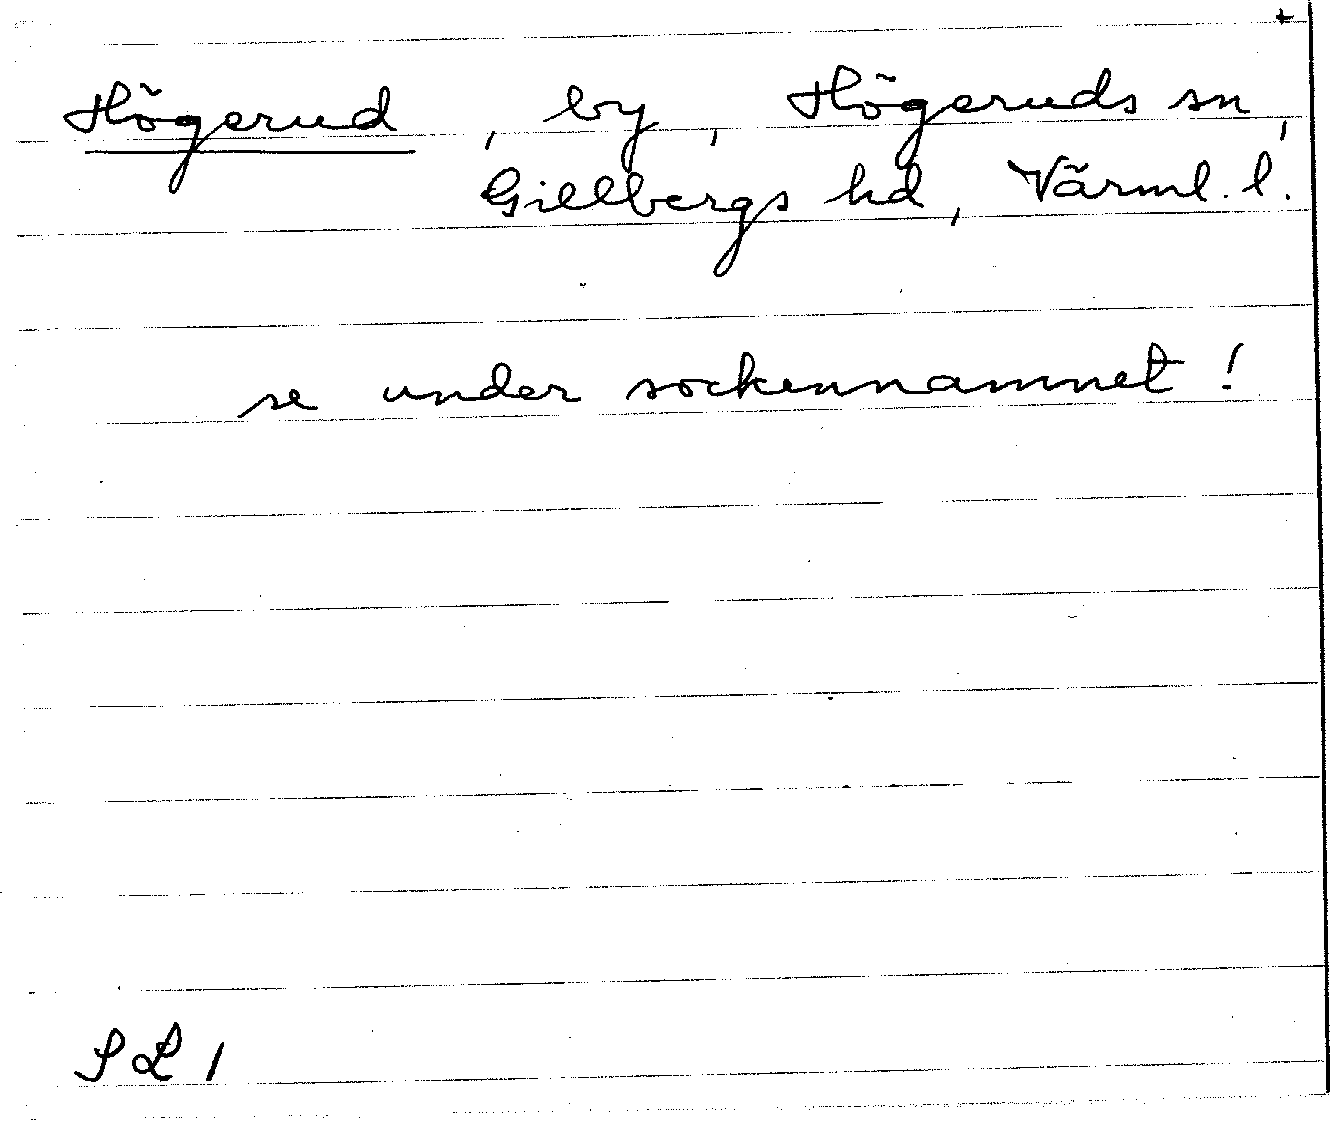 Högerud, by, Högeruds sn,
Gillbergs hd, Värml. l.
se under sockennamnet!